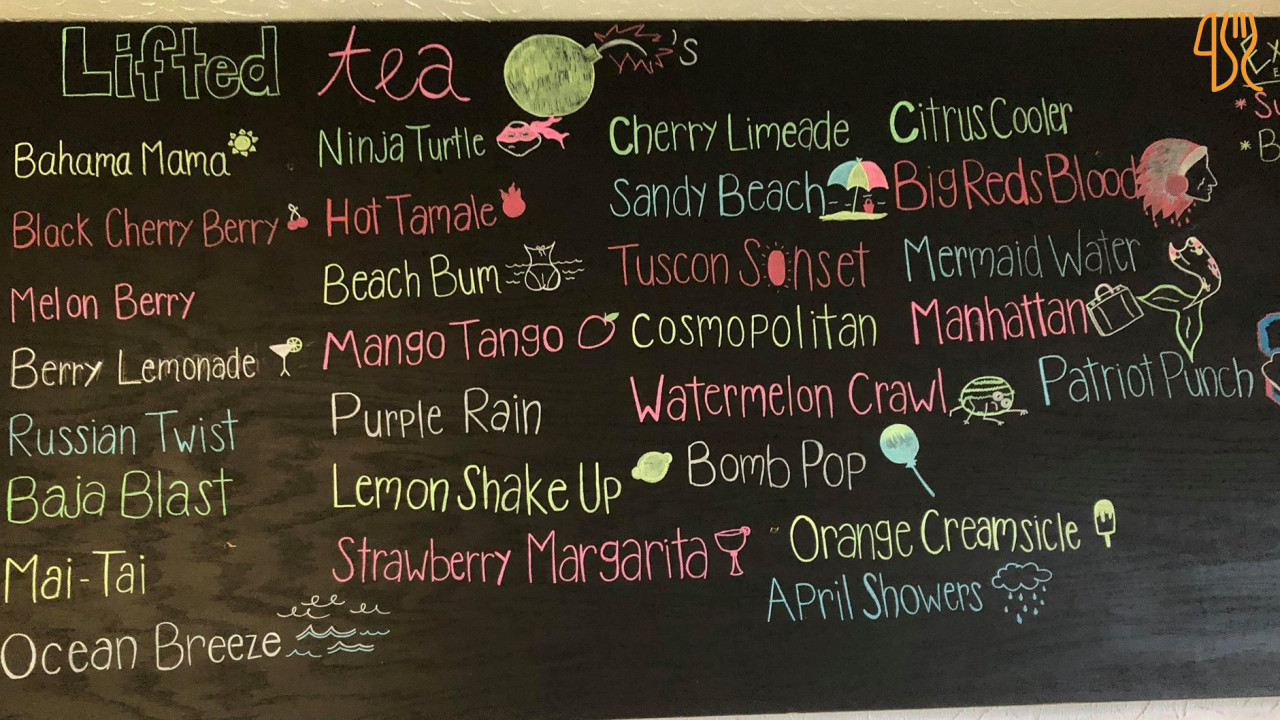 Lifted tea 's
Bahama Mama
Black Cherry Berry
Melon Berry
Berry Lemonade
Russian Twist
Baja Blast
Mai-Tai
Ocean Breeze
Ninja Turtle
Hot Tamale
Beach Bum
Mango Tango
Purple Rain
Lemon Shake Up
Strawberry Margarita
Cherry Limeade
Sandy Beach
Tuscon Sunset
Cosmopolitan
Watermelon Crawl
Bomb Pop
Orange Creamsicle
April Showers
Citrus Cooler
Big Reds Blood
Mermaid Water
Manhattan
Patriot Punch